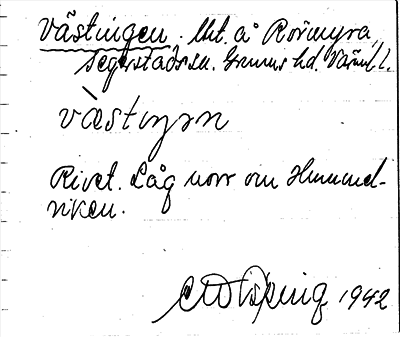 Västingen. Utt. å Rörmyra,
Segerstads sn. Grums hd. Värml. l.
västiŋən
Rivet. Låg norr om Himmel-
riken.
1942